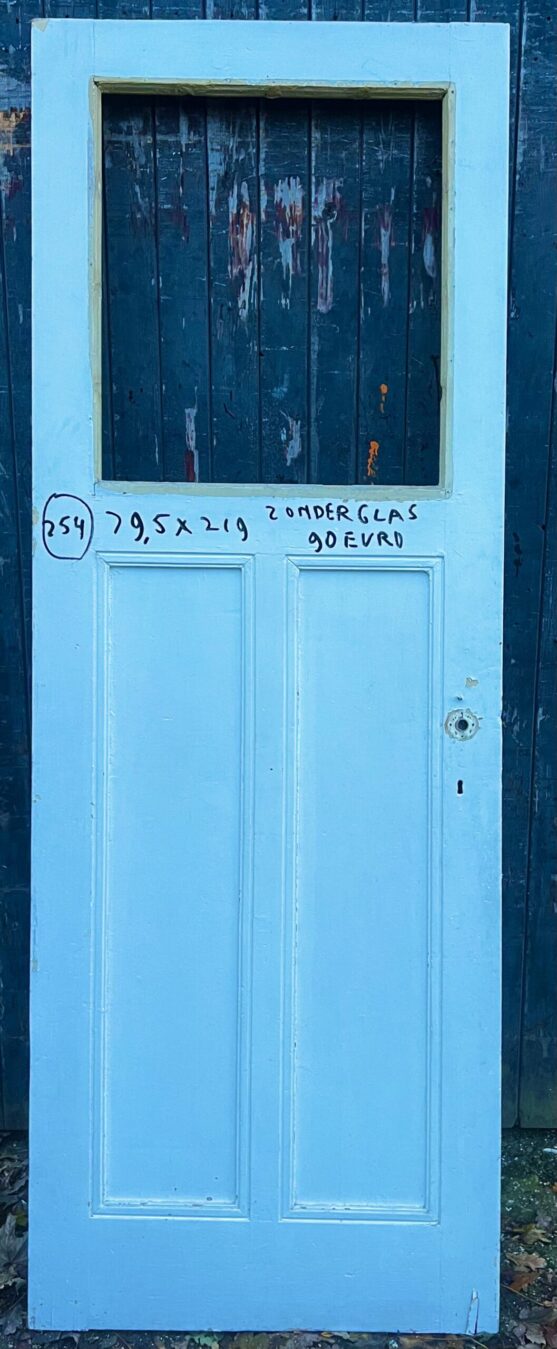 254 79,5 x 219 ZONDER GLAS
90 EURO